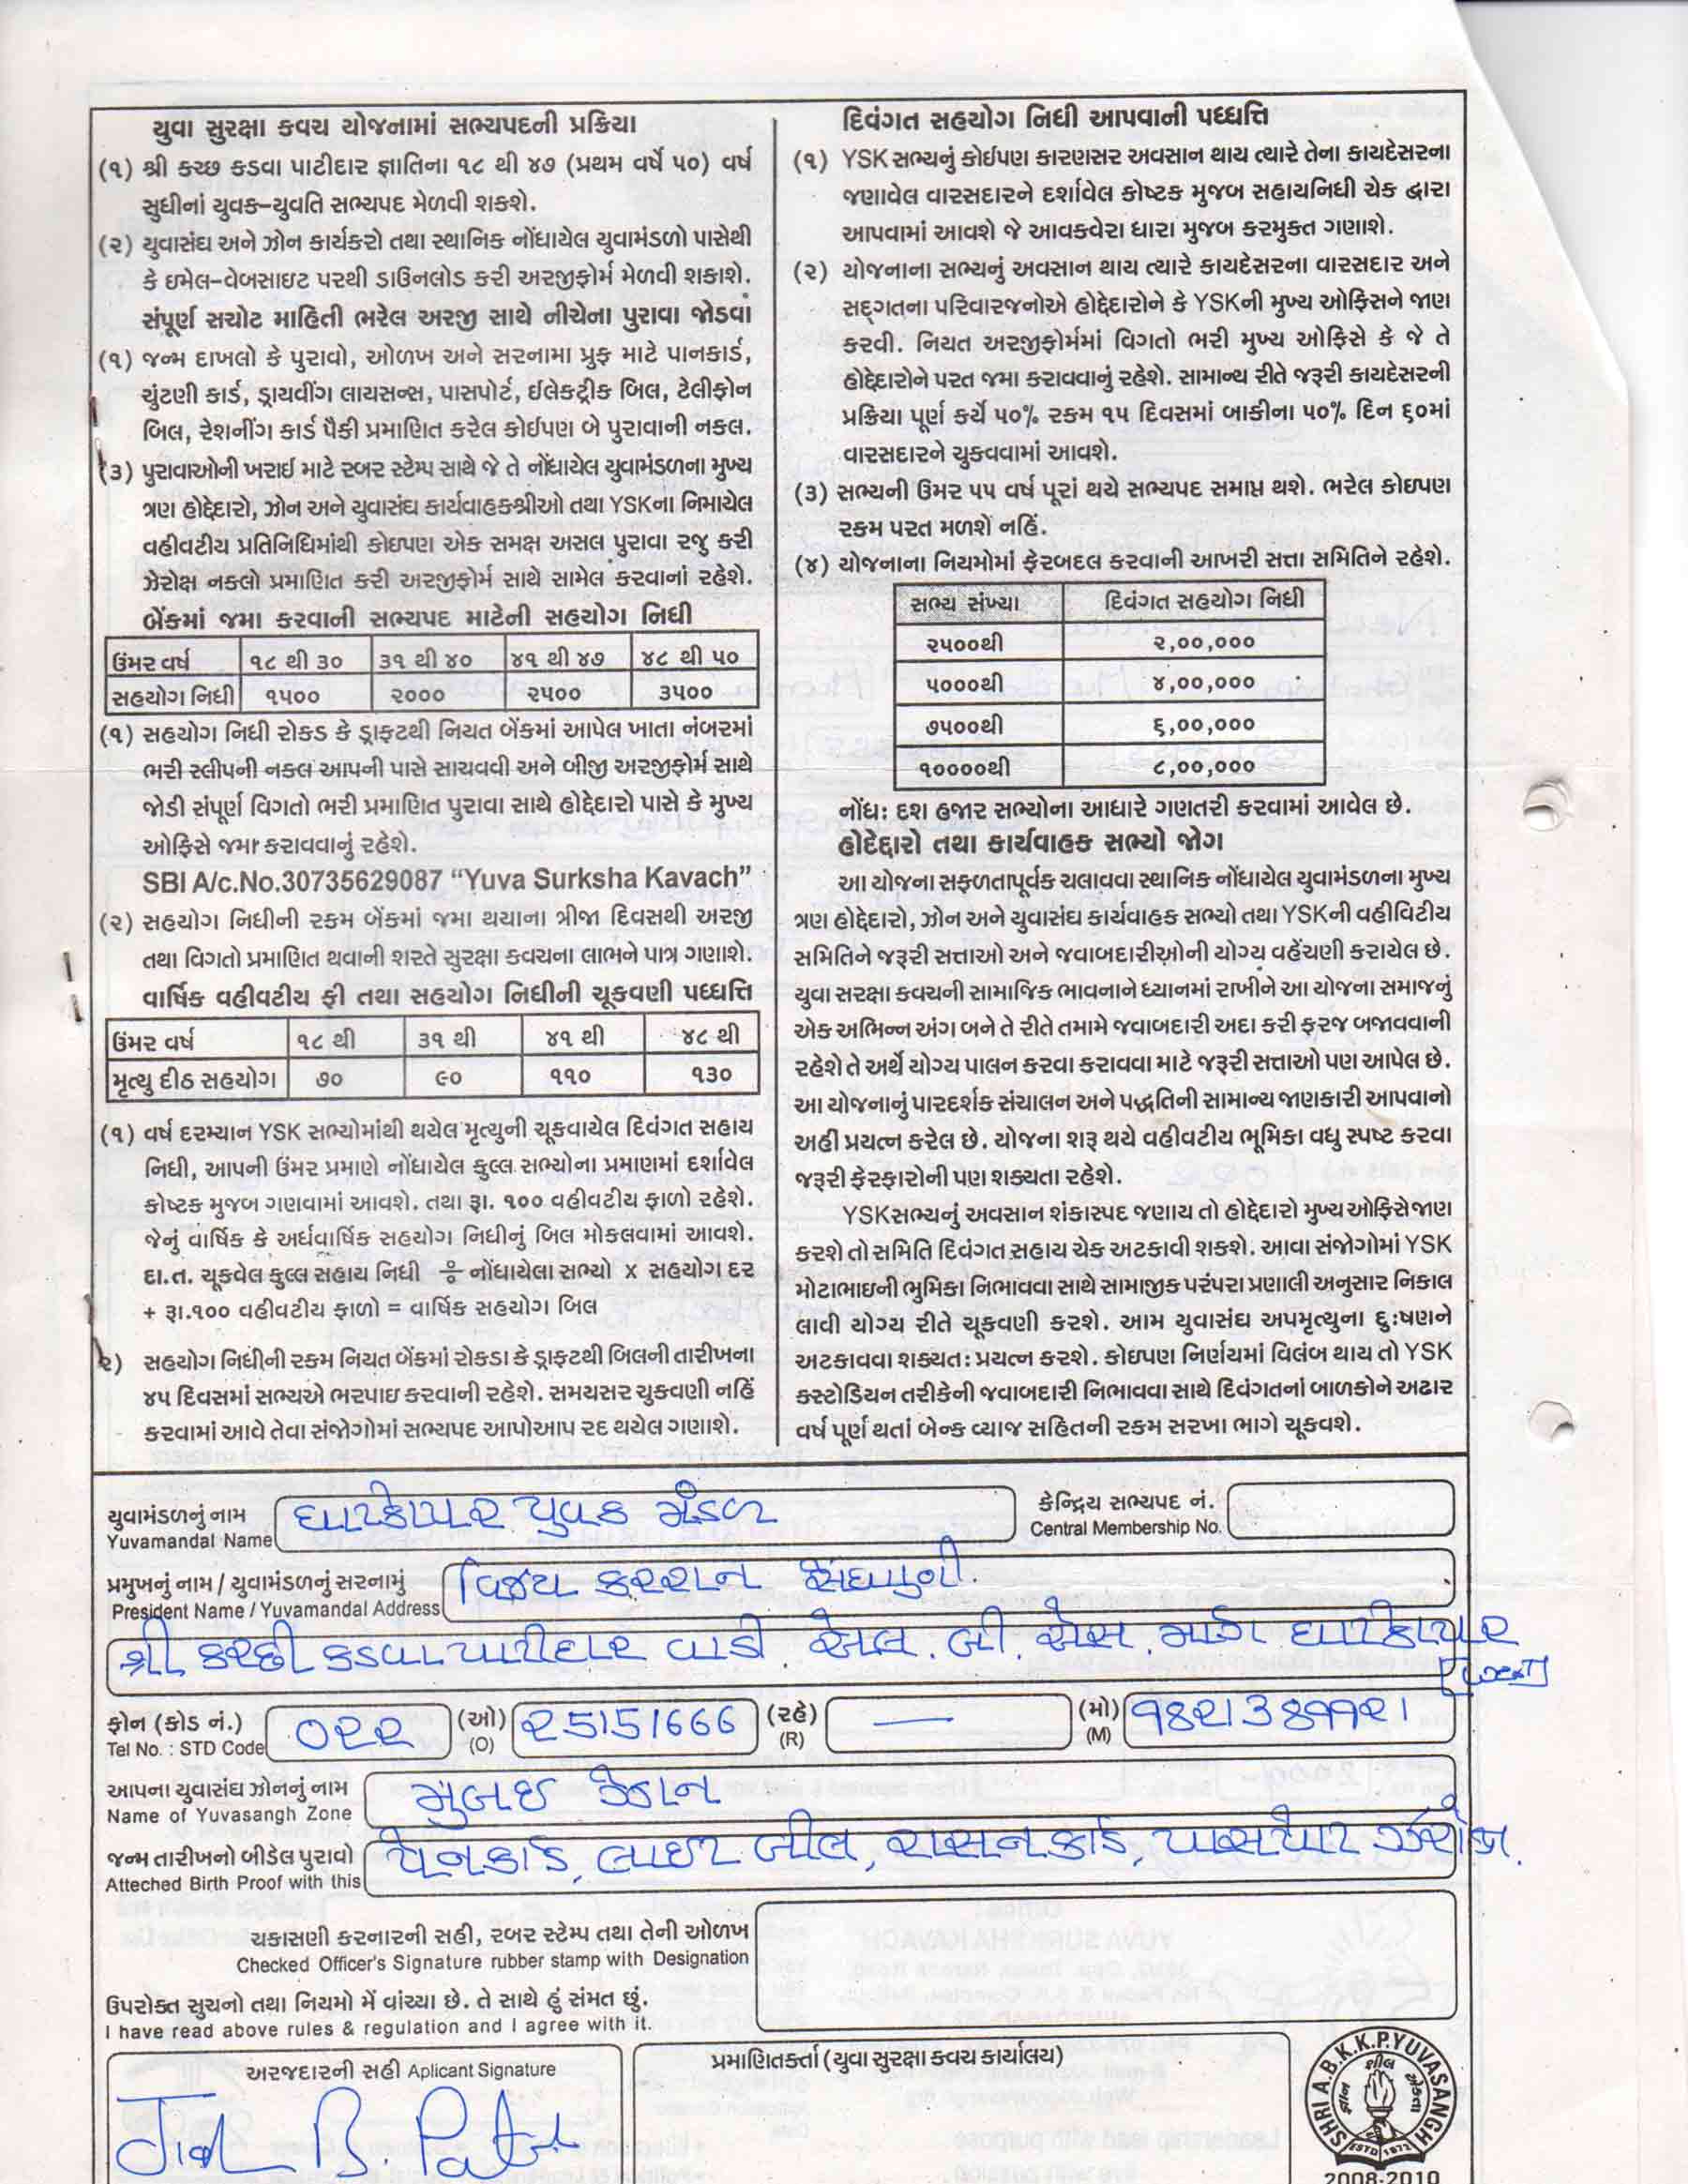 યુવા સુરક્ષા કવચ યોજનામાં સભ્યપદની પ્રક્રિયા
(૧) શ્રી કચ્છ કડવા પાટીદાર જ્ઞાતિના ૧૮ થી ૪૭ (પ્રથમ વર્ષે ૫૦) વર્ષ
સુધીનાં યુવક-યુવતિ સભ્યપદ મેળવી શકશે.
(૨) યુવાસંઘ અને ઝોન કાર્યકરો તથા સ્થાનિક નોંધાયેલ યુવામંડળો પાસેથી
કે ઇમેલ-વેબસાઇટ પરથી ડાઉનલોડ કરી અરજીફોર્મ મેળવી શકાશે.
સંપૂર્ણ સચોટ માહિતી ભરેલ અરજી સાથે નીચેના પુરાવા જોડવાં
(૧) જન્મ દાખલો કે પુરાવો, ઓળખ અને સરનામા પ્રુફ માટે પાનકાર્ડ,
ચુંટણી કાર્ડ, ડ્રાયવીંગ લાયસન્સ, પાસપોર્ટ, ઈલેકટ્રીક બિલ, ટેલીફોન
બિલ, રેશનીંગ કાર્ડ પૈકી પ્રમાણિત કરેલ કોઈપણ બે પુરાવાની નકલ.
(૩) પુરાવાઓની ખરાઈ માટે રબર સ્ટેમ્પ સાથે જે તે નોંધાયેલ યુવામંડળના મુખ્ય
ત્રણ હોદ્દેદારો, ઝોન અને યુવાસંઘ કાર્યવાહકશ્રીઓ તથા YSKના નિમાયેલ
વહીવટીય પ્રતિનિધિમાંથી કોઇપણ એક સમક્ષ અસલ પુરાવા રજુ કરી
ઝેરોક્ષ નકલો પ્રમાણિત કરી અરજીફોર્મ સાથે સામેલ કરવાનાં રહેશે.
બેંકમાં જમા કરવાની સભ્યપદ માટેની સહયોગ નિધી
ઉંમર વર્ષ ૧૮ થી ૩૦ ૩૧ થી ૪૦ ૪૧ થી ૪૭ ૪૮ થી ૫૦
સહયોગ નિધી ૧૫૦૦ ૨૦૦૦ ૨૫૦૦ ૩૫૦૦
(૧) સહયોગ નિધી રોકડ કે ડ્રાફટથી નિયત બેંકમાં આપેલ ખાતા નંબરમાં
ભરી સ્લીપની નકલ આપની પાસે સાચવવી અને બીજી અરજીફોર્મ સાથે
જોડી સંપૂર્ણ વિગતો ભરી પ્રમાણિત પુરાવા સાથે હોદ્દેદારો પાસે કે મુખ્ય
ઓફિસે જમા કરાવવાનું રહેશે.
SBI A/c.No.30735629087 “Yuva Surksha Kavach”
(૨) સહયોગ નિધીની રકમ બેંકમાં જમા થયાના ત્રીજા દિવસથી અરજી
તથા વિગતો પ્રમાણિત થવાની શરતે સુરક્ષા કવચના લાભને પાત્ર ગણાશે.
વાર્ષિક વહીવટીય ફી તથા સહયોગ નિધીની ચૂકવણી પધ્ધતિ
ઉંમર વર્ષ ૧૮ થી ૩૧ થી ૪૧ થી ૪૮ થી
મૃત્યુ દીઠ સહયોગ ૭૦ ૯૦ ૧૧૦ ૧૩૦
(૧) વર્ષ દરમ્યાન YSK સભ્યોમાંથી થયેલ મૃત્યુની ચૂકવાયેલ દિવંગત સહાય
નિધી, આપની ઉંમર પ્રમાણે નોંધાયેલ કુલ્લ સભ્યોના પ્રમાણમાં દર્શાવેલ
કોષ્ટક મુજબ ગણવામાં આવશે. તથા રૂા. ૧૦૦ વહીવટીય ફાળો રહેશે.
જેનું વાર્ષિક કે અર્ધવાર્ષિક સહયોગ નિધીનું બિલ મોકલવામાં આવશે.
દા.ત. ચૂકવેલ કુલ્લ સહાય નિધી ÷ નોંધાયેલા સભ્યો x સહયોગ દર
+ રૂા.૧૦૦ વહીવટીય ફાળો = વાર્ષિક સહયોગ બિલ
૨) સહયોગ નિધીની રકમ નિયત બેંકમાં રોકડા કે ડ્રાફટથી બિલની તારીખના
૪૫ દિવસમાં સભ્યએ ભરપાઇ કરવાની રહેશે. સમયસર ચુકવણી નહિં
કરવામાં આવે તેવા સંજોગોમાં સભ્યપદ આપોઆપ રદ થયેલ ગણાશે.
દિવંગત સહયોગ નિધી આપવાની પધ્ધતિ
(૧) YSK સભ્યનું કોઈપણ કારણસર અવસાન થાય ત્યારે તેના કાયદેસરના
જણાવેલ વારસદારને દર્શાવેલ કોષ્ટક મુજબ સહાયનિધી ચેક દ્વારા
આપવામાં આવશે જે આવકવેરા ધારા મુજબ કરમુક્ત ગણાશે.
(૨) યોજનાના સભ્યનું અવસાન થાય ત્યારે કાયદેસરના વારસદાર અને
સદ્ગતના પરિવારજનોએ હોદ્દેદારોને કે YSKની મુખ્ય ઓફિસને જાણ
કરવી. નિયત અરજીફોર્મમાં વિગતો ભરી મુખ્ય ઓફિસે કે જે તે
હોદ્દેદારોને પરત જમા કરાવવાનું રહેશે. સામાન્ય રીતે જરૂરી કાયદેસરની
પ્રક્રિયા પૂર્ણ કર્યે ૫૦% રકમ ૧૫ દિવસમાં બાકીના ૫૦% દિન ૬૦માં
વારસદારને ચુકવવામાં આવશે.
(૩) સભ્યની ઉંમર ૫૫ વર્ષ પૂરાં થયે સભ્યપદ સમાપ્ત થશે. ભરેલ કોઇપણ
રકમ પરત મળશે નહિં.
(૪) યોજનાના નિયમોમાં ફેરબદલ કરવાની આખરી સત્તા સમિતિને રહેશે.
સભ્ય સંખ્યા દિવંગત સહયોગ નિધી
૨૫૦૦થી ૨,૦૦,૦૦૦
૫૦૦૦થી ૪,૦૦,૦૦૦
૭૫૦૦થી ૬,૦૦,૦૦૦
૧૦૦૦૦થી ૮,૦૦,૦૦૦
નોંધ: દશ હજાર સભ્યોના આધારે ગણતરી કરવામાં આવેલ છે.
હોદેદ્દારો તથા કાર્યવાહક સભ્યો જોગ
આ યોજના સફળતાપૂર્વક ચલાવવા સ્થાનિક નોંધાયેલ યુવામંડળના મુખ્ય
ત્રણ હોદ્દેદારો, ઝોન અને યુવાસંઘ કાર્યવાહક સભ્યો તથા YSKની વહીવિટીય
સમિતિને જરૂરી સત્તાઓ અને જવાબદારીઓની યોગ્ય વહેંચણી કરાયેલ છે.
યુવા સરક્ષા કવચની સામાજિક ભાવનાને ધ્યાનમાં રાખીને આ યોજના સમાજનું
એક અભિન્ન અંગ બને તે રીતે તમામે જવાબદારી અદા કરી ફરજ બજાવવાની
રહેશે તે અર્થે યોગ્ય પાલન કરવા કરાવવા માટે જરૂરી સત્તાઓ પણ આપેલ છે.
આ યોજનાનું પારદર્શક સંચાલન અને પદ્ધતિની સામાન્ય જાણકારી આપવાનો
અહીં પ્રયત્ન કરેલ છે. યોજના શરૂ થયે વહીવટીય ભૂમિકા વધુ સ્પષ્ટ કરવા
જરૂરી ફેરફારોની પણ શક્યતા રહેશે.
YSKસભ્યનું અવસાન શંકાસ્પદ જણાય તો હોદ્દેદારો મુખ્ય ઓફિસે જાણ
કરશે તો સમિતિ દિવંગત સહાય ચેક અટકાવી શકશે. આવા સંજોગોમાં YSK
મોટાભાઇની ભુમિકા નિભાવવા સાથે સામાજીક પરંપરા પ્રણાલી અનુસાર નિકાલ
લાવી યોગ્ય રીતે ચૂકવણી કરશે. આમ યુવાસંઘ અપમૃત્યુના દુ:ષણને
અટકાવવા શક્યત: પ્રયત્ન કરશે. કોઇપણ નિર્ણયમાં વિલંબ થાય તો YSK
કસ્ટોડિયન તરીકેની જવાબદારી નિભાવવા સાથે દિવંગતનાં બાળકોને અઢાર
વર્ષ પૂર્ણ થતાં બેન્ક વ્યાજ સહિતની રકમ સરખા ભાગે ચૂકવશે.
યુવામંડળનું નામ ઘાટકોપર યુવક મંડળ કેન્દ્રિય સભ્યપદ નં.
Yuvamandal Name Central Membership No.
પ્રમુખનું નામ / યુવામંડળનું સરનામું વિજય કરશન સેંઘાણી.
President Name / Yuvamandal Address
શ્રી કચ્છી કડવા પાટીદાર વાડી. એલ. બી. એસ. માર્ગ ઘાટકોપર
ફોન (કોડ નં.) ૦૨૨ (ઓ) ૨5151666 (રહે) — (મો) ૧8૨138૧૧૨1
Tel No. : STD Code (O) (R) (M)
આપના યુવાસંઘ ઝોનનું નામ મુંબઇ ઝોન
Name of Yuvasangh Zone
જન્મ તારીખનો બીડેલ પુરાવો પેનકાર્ડ, લાઇટ બીલ, રાસનકાર્ડ, પાસપોર્ટ ઝેરોક્ષ.
Atteched Birth Proof with this
ચકાસણી કરનારની સહી, રબર સ્ટેમ્પ તથા તેની ઓળખ
Checked Officer's Signature rubber stamp with Designation
ઉપરોક્ત સુચનો તથા નિયમો મેં વાંચ્યા છે. તે સાથે હું સંમત છું.
I have read above rules & regulation and I agree with it.
અરજદારની સહી Aplicant Signature
પ્રમાણિતકર્તા (યુવા સુરક્ષા કવચ કાર્યાલય)
SHRI A.B.K.K.P.YUVASANGH
ESTD 1972
2008-2010